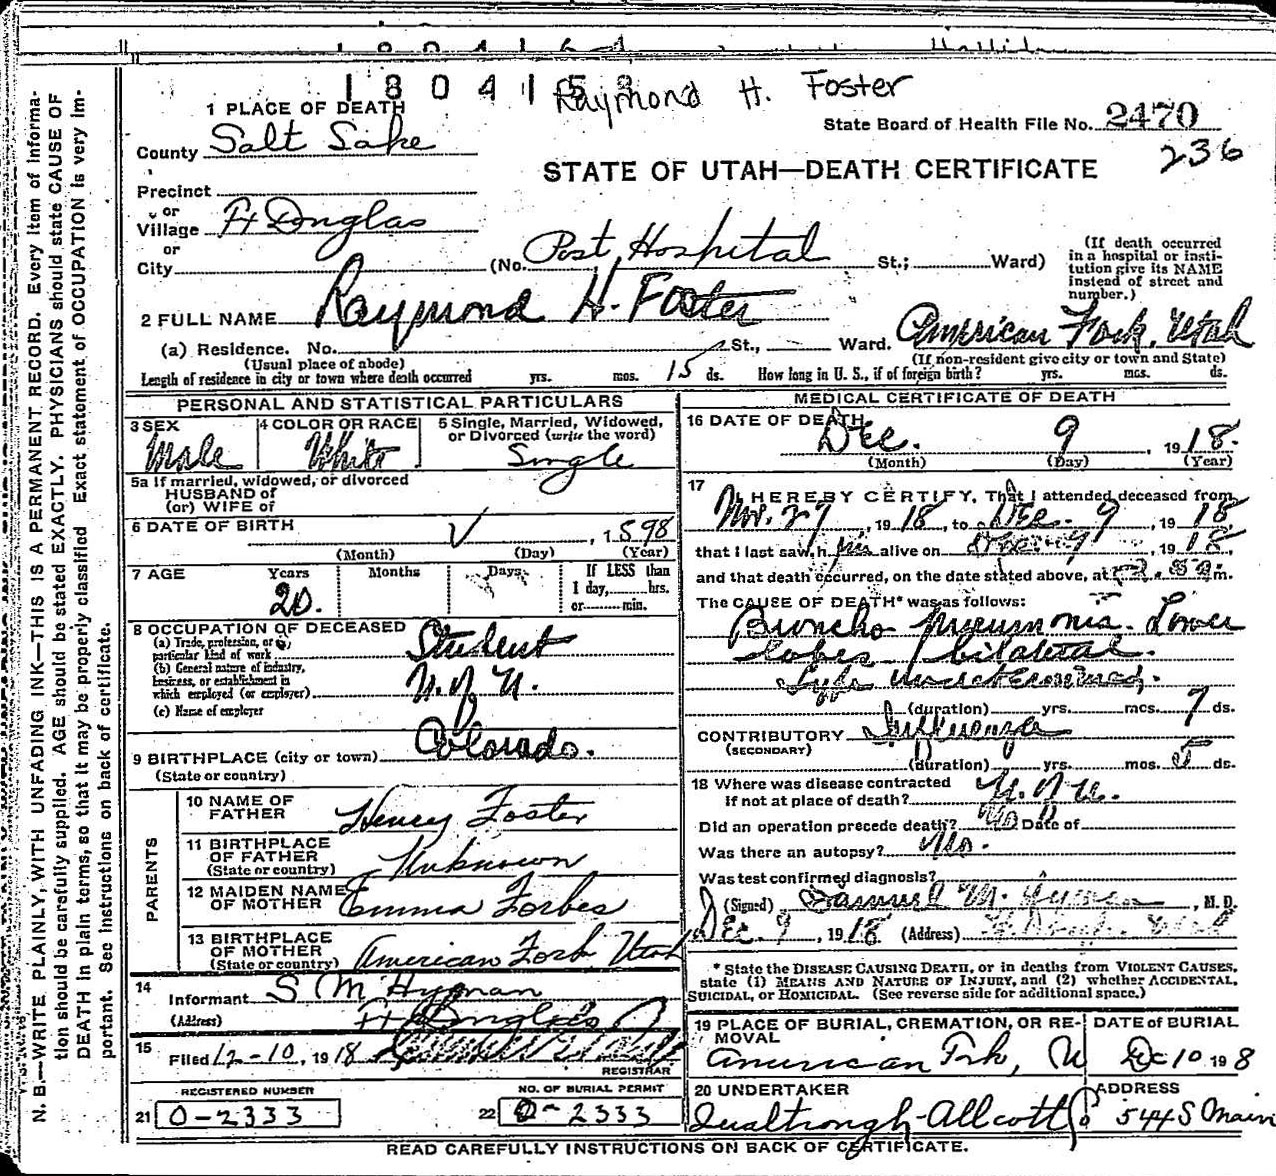 1804158
Raymond H. Foster
1 PLACE OF DEATH
County Salt Lake
State Board of Health File No. 2470
236
STATE OF UTAH—DEATH CERTIFICATE
Precinct
or
Village Ft Douglas
or
City (No. Post Hospital St.; Ward)
(If death occurred
in a hospital or insti-
tution give its NAME
instead of street and
number.)
2 FULL NAME Raymond H. Foster
(a) Residence. No. St., Ward. American Fork, Utah
(Usual place of abode) (If non-resident give city or town and State)
Length of residence in city or town where death occurred yrs. mos. 15 ds. How long in U. S., if of foreign birth? yrs. mos. ds.
PERSONAL AND STATISTICAL PARTICULARS
3 SEX
Male
4 COLOR OR RACE
White
5 Single, Married, Widowed,
or Divorced (write the word)
Single
5a If married, widowed, or divorced
HUSBAND of
(or) WIFE of
6 DATE OF BIRTH
, 1898
(Month) (Day) (Year)
7 AGE Years Months Days If LESS than
1 day, hrs.
20. or min.
8 OCCUPATION OF DECEASED
(a) Trade, profession, or
particular kind of work Student
(b) General nature of industry,
business, or establishment in
which employed (or employer) U. of U.
(c) Name of employer
9 BIRTHPLACE (city or town) Colorado.
(State or country)
PARENTS
10 NAME OF
FATHER Henry Foster
11 BIRTHPLACE
OF FATHER
(State or country) Unknown
12 MAIDEN NAME
OF MOTHER Emma Forbes
13 BIRTHPLACE
OF MOTHER
(State or country) American Fork Utah
14
Informant S M Hyman
(Address) Ft Douglas
15
Filed 12-10, 1918
REGISTRAR
REGISTERED NUMBER
21 0-2333
NO. OF BURIAL PERMIT
22 0-2333
MEDICAL CERTIFICATE OF DEATH
16 DATE OF DEATH
Dec. 9, 1918.
(Month) (Day) (Year)
17
I HEREBY CERTIFY, That I attended deceased from
Nov. 27, 1918, to Dec. 9 1918,
that I last saw him alive on Dec. 9, 1918,
and that death occurred, on the date stated above, at m.
The CAUSE OF DEATH* was as follows:
Broncho Pneumonia. Lower
lobes, bilateral.
Type undetermined.
(duration) yrs. mos. 7 ds.
CONTRIBUTORY Influenza
(SECONDARY)
(duration) yrs. mos. 5 ds.
18 Where was disease contracted
if not at place of death? U. of U.
Did an operation precede death? No Date of
Was there an autopsy? No.
Was test confirmed diagnosis?
(Signed) Samuel M. Hyman, M. D.
Dec. 9, 1918 (Address)
* State the DISEASE CAUSING DEATH, or in deaths from VIOLENT CAUSES,
state (1) MEANS AND NATURE OF INJURY, and (2) whether ACCIDENTAL,
SUICIDAL, or HOMICIDAL. (See reverse side for additional space.)
19 PLACE OF BURIAL, CREMATION, OR RE-
MOVAL
American Frk, U
DATE of BURIAL
Dec 10 1918
20 UNDERTAKER
Qualtrough-Allcott
ADDRESS
544 S Main
READ CAREFULLY INSTRUCTIONS ON BACK OF CERTIFICATE.
N. B—WRITE PLAINLY, WITH UNFADING INK—THIS IS A PERMANENT RECORD. Every item of informa-
tion should be carefully supplied. AGE should be stated EXACTLY. PHYSICIANS should state CAUSE OF
DEATH in plain terms, so that it may be properly classified. Exact statement of OCCUPATION is very im-
portant. See instructions on back of certificate.